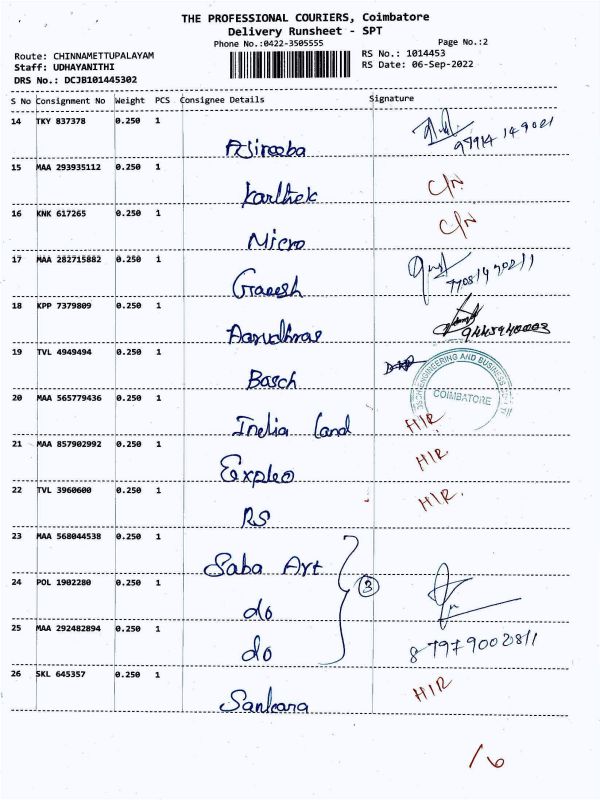 THE PROFESSIONAL COURIERS, Coimbatore
Delivery Runsheet - SPT
Phone No.:0422-3505555 Page No.:2
Route: CHINNAMETTUPALAYAM RS No.: 1014453
Staff: UDHAYANITHI RS Date: 06-Sep-2022
DRS No.: DCJB101445302
S No Consignment No Weight PCS Consignee Details Signature
14 TKY 837378 0.250 1
15 MAA 293935112 0.250 1
Karthek C/N
16 KNK 617265 0.250 1 C/N
Micro
17 MAA 282715882 0.250 1
Ganesh
18 KPP 7379809 0.250 1
Aarudhras
19 TVL 4949494 0.250 1
Bosch ENGINEERING AND BUSINESS
20 MAA 565779436 0.250 1 COIMBATORE
India Land H/R
21 MAA 857902992 0.250 1
Expleo H/R
22 TVL 3960600 0.250 1 H/R.
RS
23 MAA 568044538 0.250 1
Saba Art
24 POL 1902280 0.250 1 3
do
25 MAA 292482894 0.250 1
do 87979002811
26 SKL 645357 0.250 1 H/R
Sankara
/6